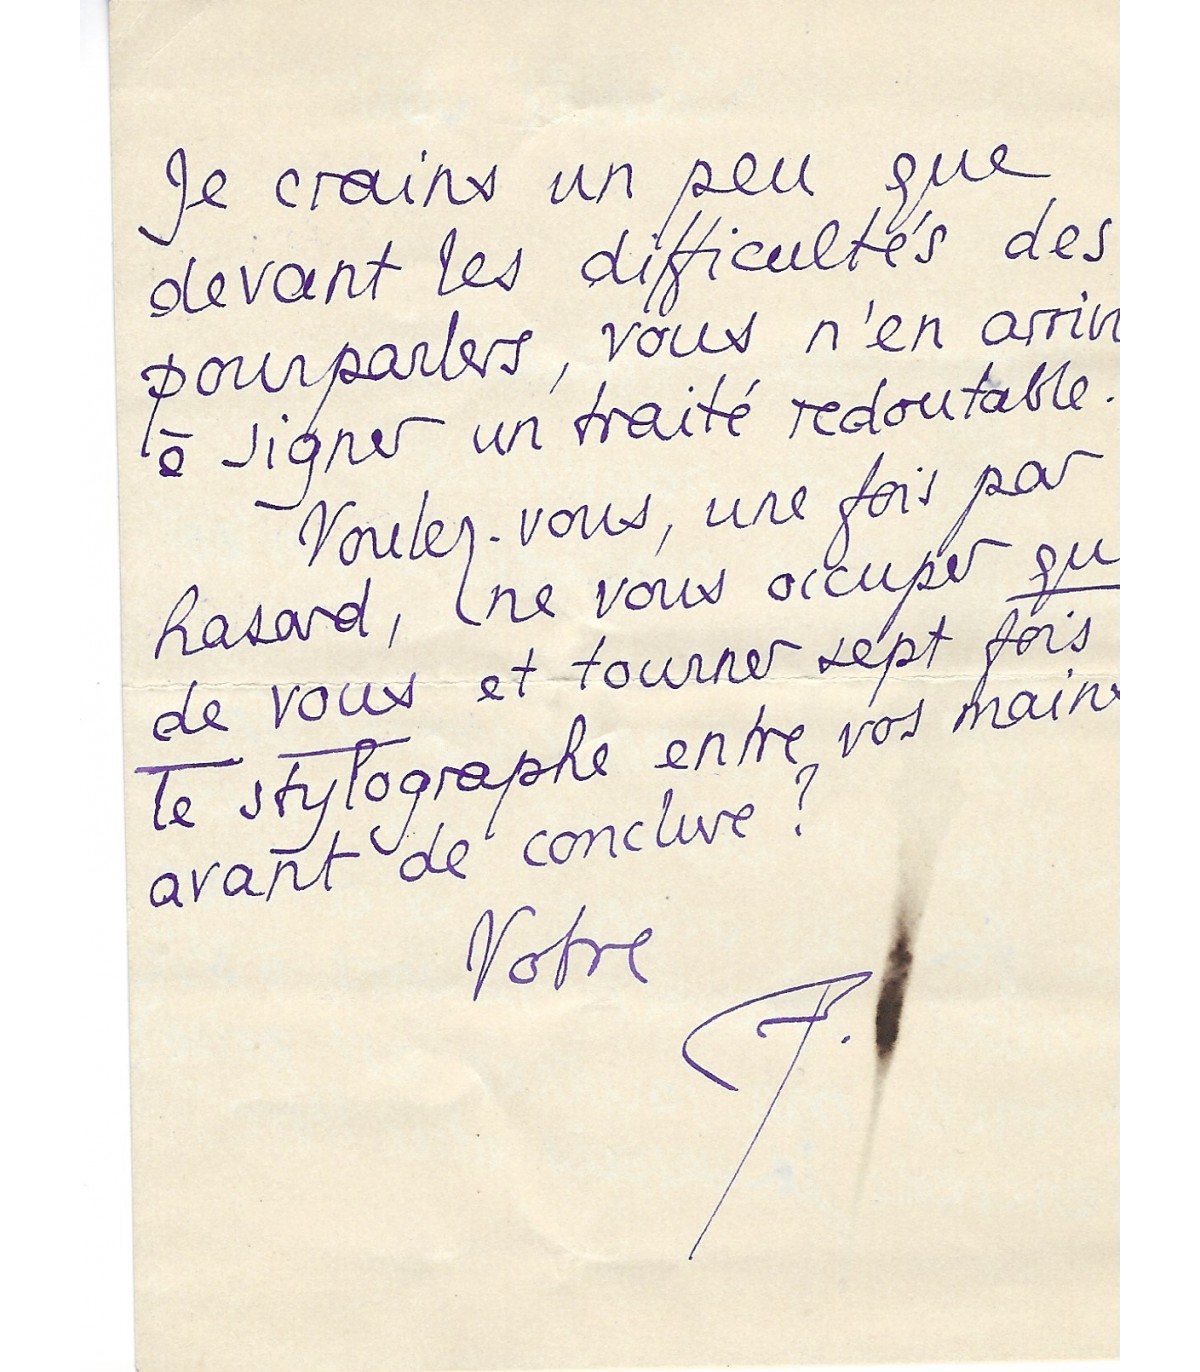 Je crains un peu que
devant les difficultés des
pourparlers, vous n'en arriv
à signer un traité redoutable.
Voulez-vous, une fois par
hasard, ne vous occuper qu
de vous et tourner sept fois
le stylographe entre vos mains
avant de conclure ?
Votre